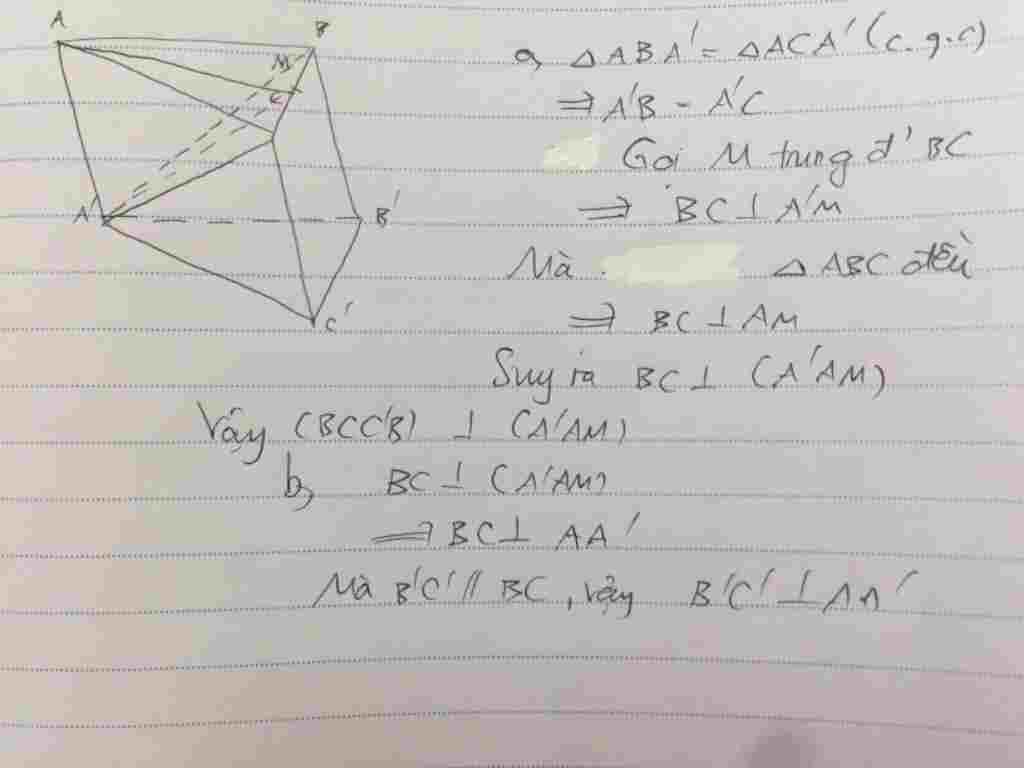 A
B
M
C
A'
B'
C'
a, △ABA' = △ACA' (c.g.c)
⇒ A'B = A'C
Gọi M trung đ' BC
⇒ BC ⊥ A'M
Mà △ ABC đều
⇒ BC ⊥ AM
Suy ra BC ⊥ (A'AM)
Vậy (BCC'B) ⊥ (A'AM)
b, BC ⊥ (A'AM)
⇒ BC ⊥ AA'
Mà B'C' // BC, vậy B'C' ⊥ AA'